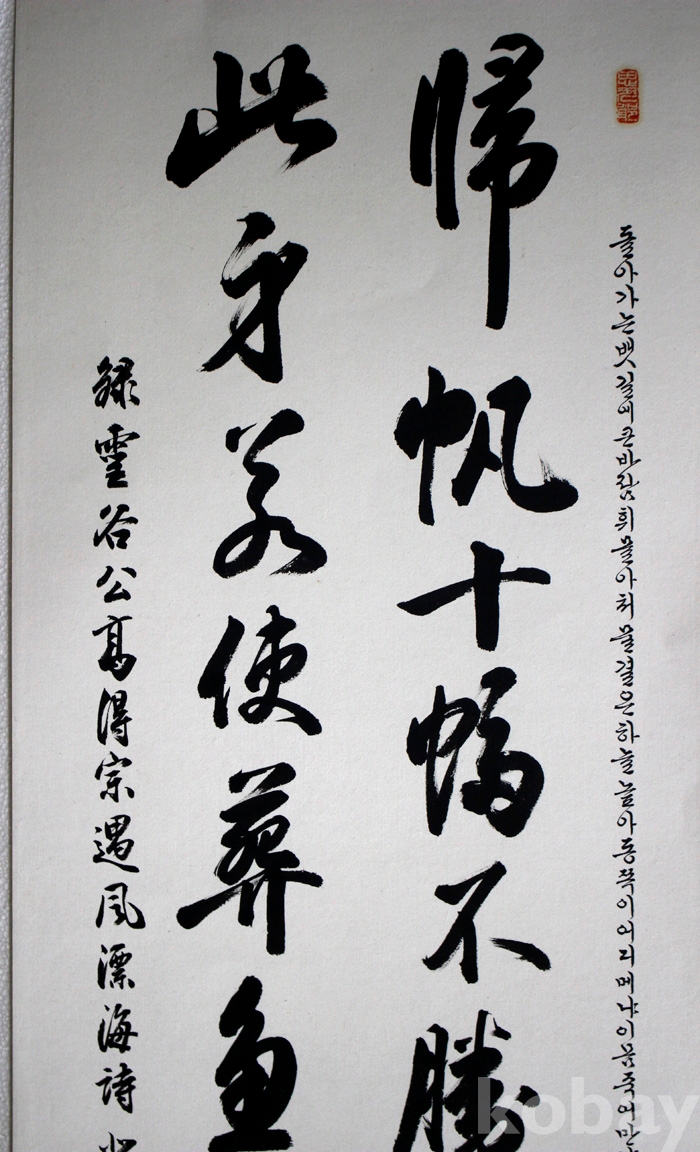 돌아가는뱃길에큰바람휘몰아처물결은하늘높아동쪽이어디메냐이몸죽어만
帰帆十幅不勝
此身若使葬魚
錄霊谷公高得宗遇風漂海詩
kobay